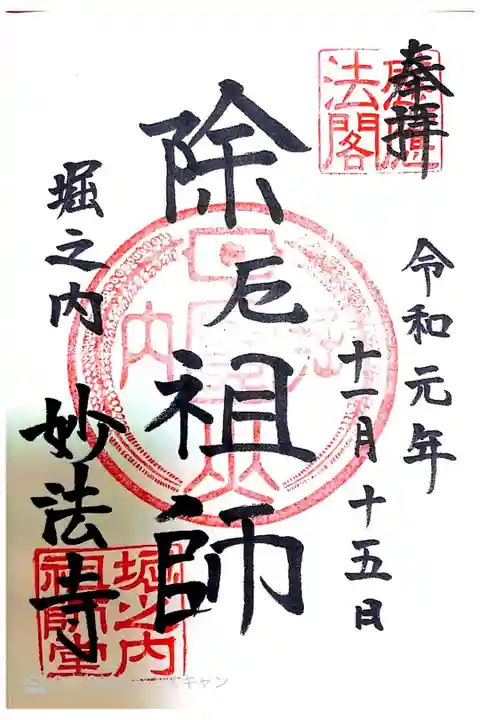 奉拝
令和元年
十一月十五日
除厄祖師
堀之内
妙法寺
法閣
堀之内
祖師堂
キャン